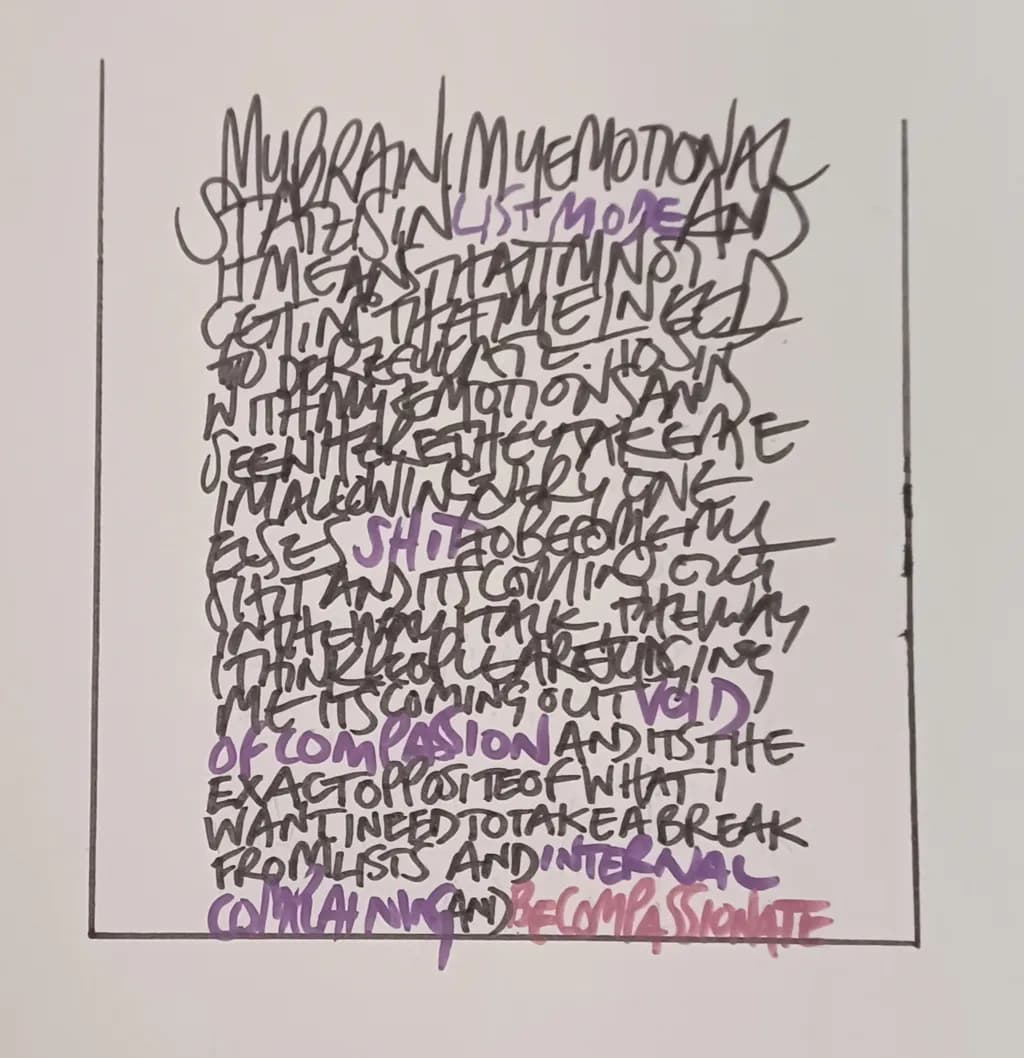 MY BRAIN MY EMOTIONAL
STATE IS IN LIST MODE AND
IT MEANS THAT IM NOT
GETTING THE TIME I NEED
TO
WITH MY EMOTIONS AND
SEEN HERE THEY TAKE ARE
IM ALLOWING EVERY ONE
ELSES SHIT TO BECOME MY
SHIT AND ITS COMING OUT
IN THE WAY I TALK THE WAY
I THINK PEOPLE ARE JUDGING
ME ITS COMING OUT VOID
OF COMPASSION AND ITS THE
EXACT OPPOSITE OF WHAT I
WANT I NEED TO TAKE A BREAK
FROM LISTS AND INTERNAL
COMPLAINING AND BE COMPASSIONATE